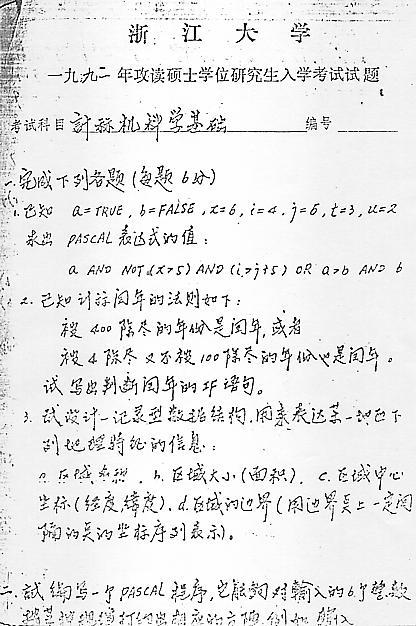 浙江大学
一九九二年攻读硕士学位研究生入学考试试题
考试科目 計祘机科学基础 编号
一.完成下列各题(每题6分)
1.已知 a=TRUE, b=FALSE, x=6, i=4, j=5, t=3, u=2
求出 PASCAL 表达式的值:
a AND NOT(x>5) AND (i>j+5) OR a>b AND b
2. 已知计祘闰年的法则如下:
被 400 除尽的年份是闰年,或者
被 4 除尽又不被 100 除尽的年份也是闰年。
试写出判断闰年的 IF 语句。
3. 试设计一记录型数据结构,用来表达某一地区下
列地理特征的信息:
a. 区域名称, b. 区域大小(面积), c. 区域中心
坐标(经度,纬度), d. 区域的边界(用边界点上一定间
隔的点的坐标序列表示)。
二. 試编写一个 PASCAL 程序,它能夠对輸入的6个整数
打印出相应的方阵,例如輸入